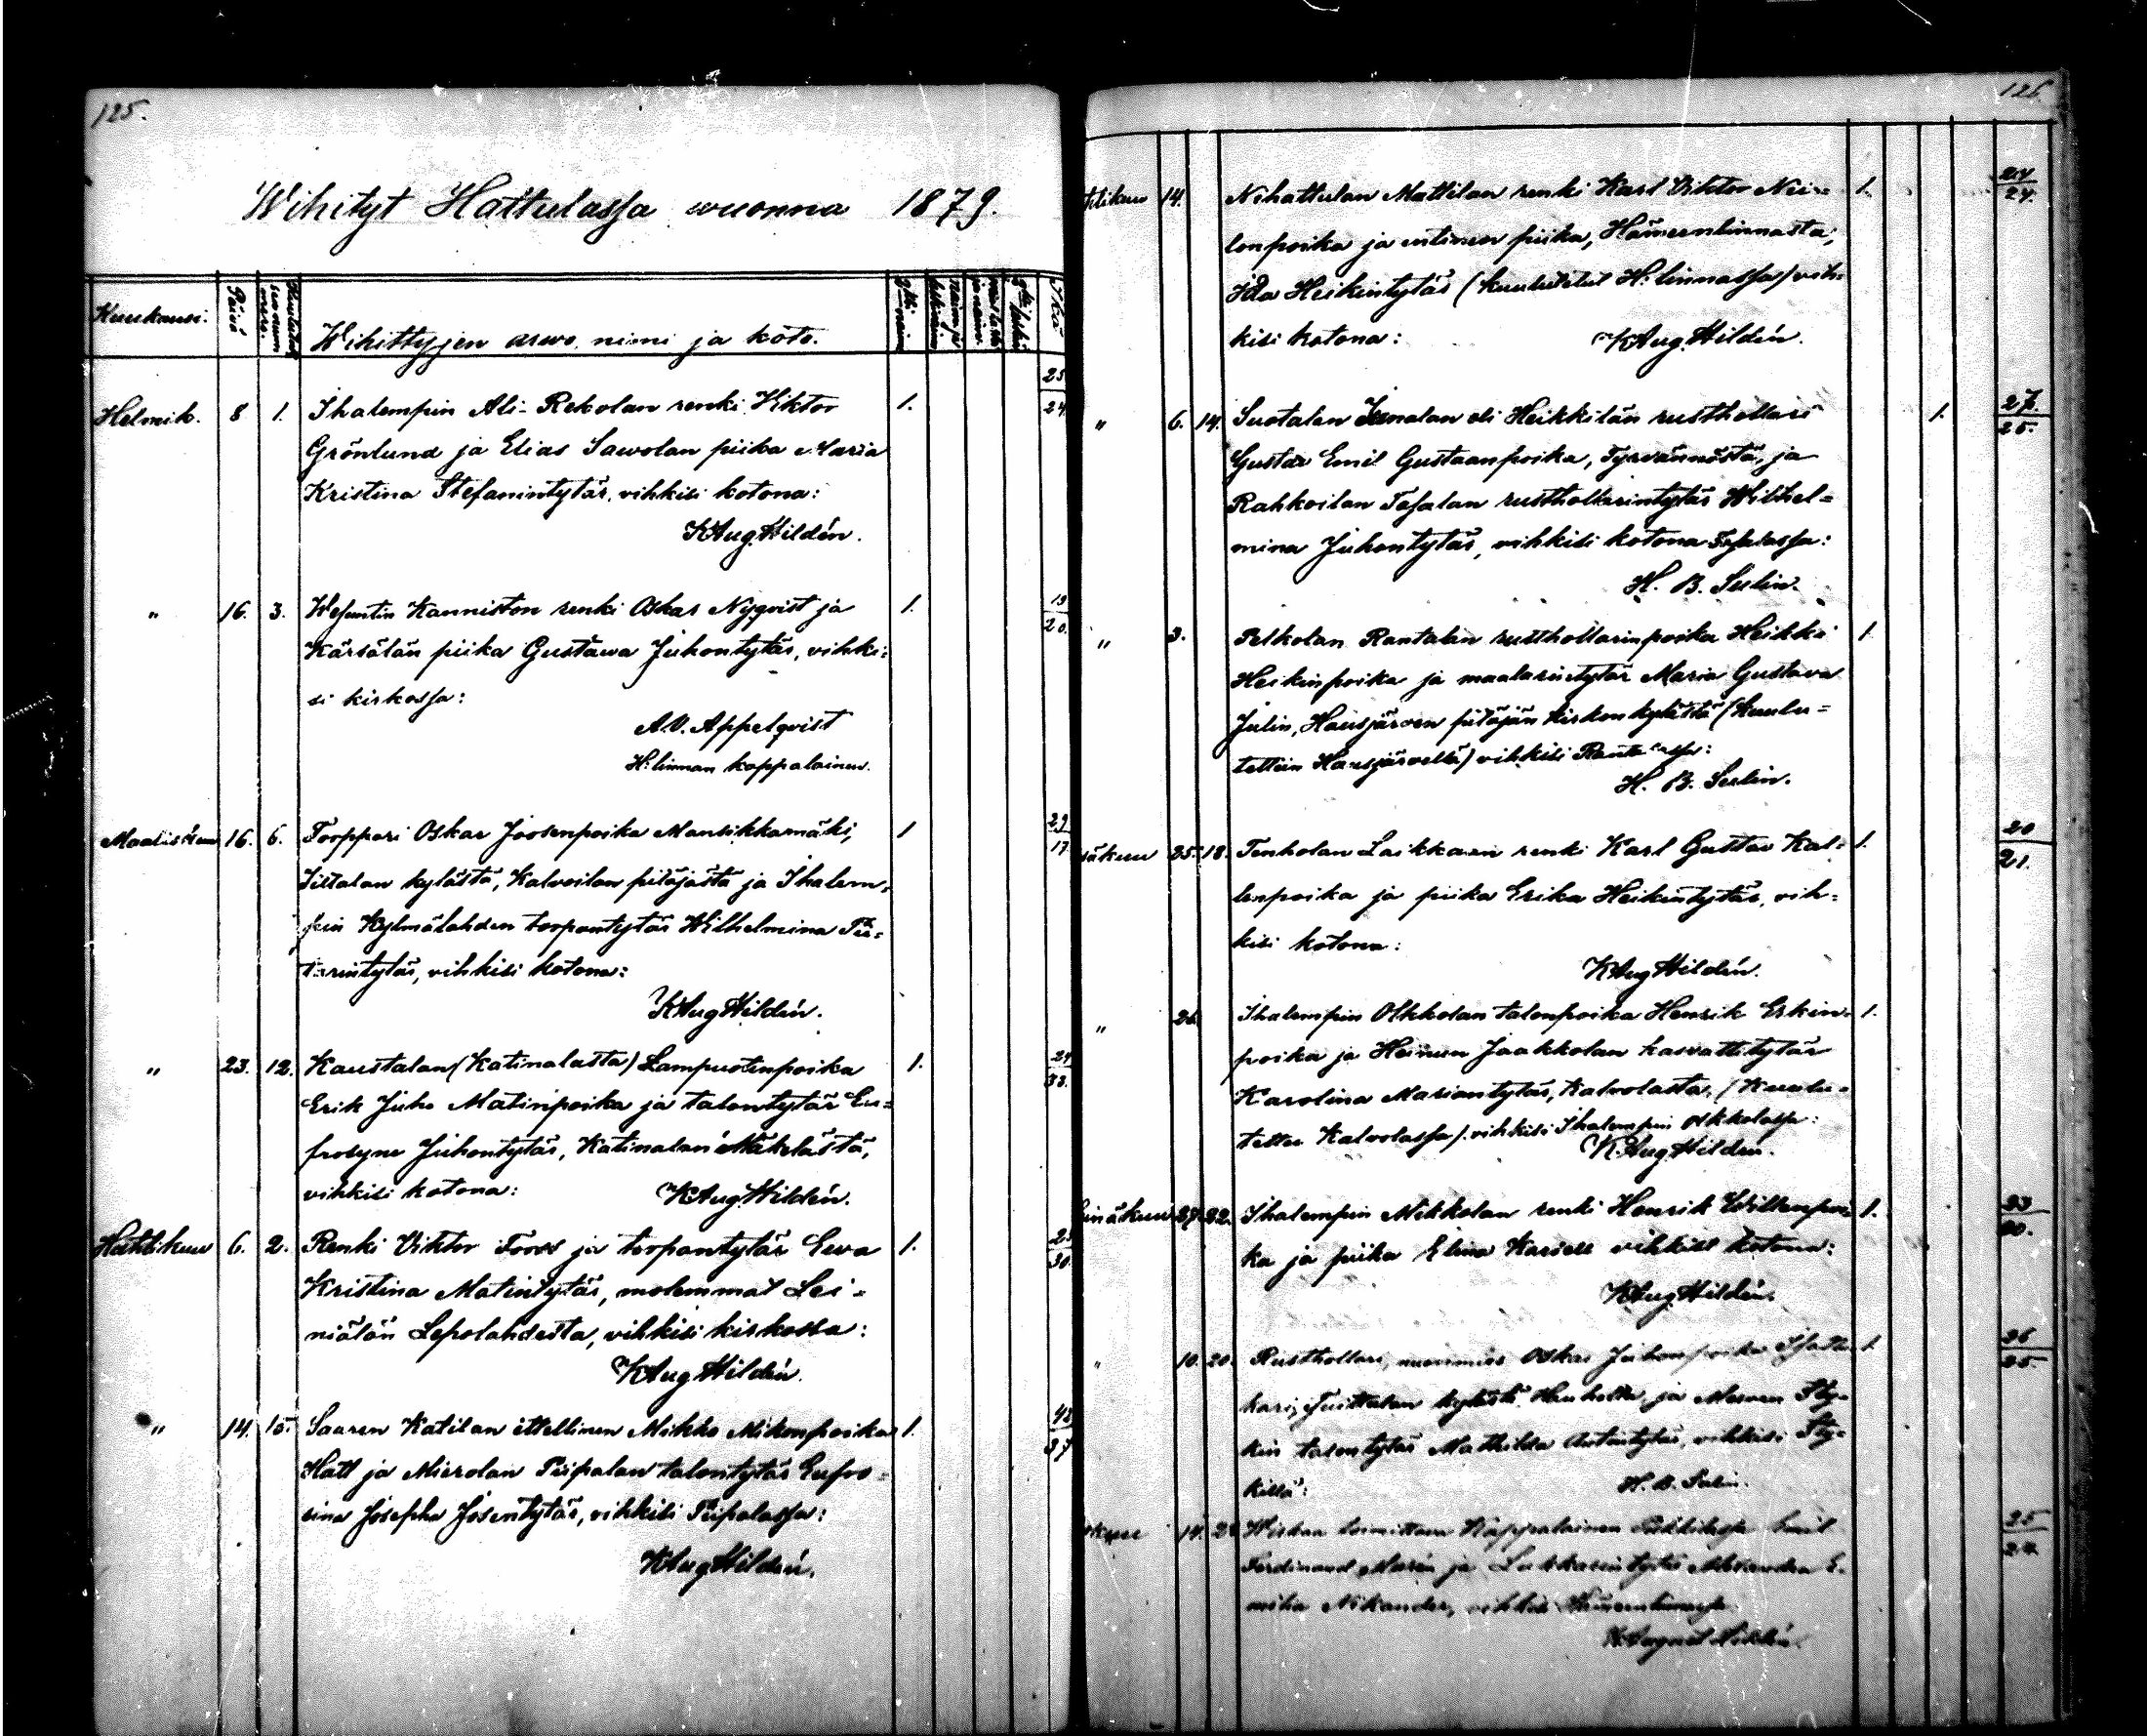 125.
Wihityt Hattulassa wuonna 1879.
Kuukausi.
Päivä
Wihittyjen arwo, nimi ja koto.
Ikä
25
Helmik. 8 1. Ihalempin Ali-Rekolan renki Viktor 1. 24
Grönlund ja Elias Sawolan piika Maria
Kristina Stefanintytär, vihkisi kotona:
KAug.Hildén.
" 16. 3. Wesuntin Kanniston renki Oskar Nyqvist ja 1. 19
Kärsälän piika Gustawa Juhontytär, vihki= 20.
si kirkossa:
A.V. Appelqvist
H:linnan kappalainen.
Maaliskuu 16. 6. Torppari Oskar Joosenpoika Mansikkamäki, 1 29
kylästä, Kalvolan pitäjästä ja Ihalem= 17
pin Kylmälahden torpantytär Wilhelmina
vihkisi kotona:
KAug Hildén.
" 23. 12. Kaustalan (Katinalasta) Lampuotinpoika 1. 24
Erik Juho Matinpoika ja talontytär Eu= 33.
frosyne Juhontytär, Katinalan Mäkelästä,
vihkisi kotona: KAug.Hildén.
Huhtikuu 6. 2. Renki Viktor Forss ja torpantytär Ewa 1. 23
Kristina Matintytär, molemmat Lei= 30.
niälän Lepolahdesta, vihkisi kirkossa:
KAug Hildén.
" 14. 15. Saaren Katilan itellinen Mikko Mikonpoika 1. 42
Hatt ja Mierolan Piipalan talontytär Eufro= 37
sina Josepha Josentytär, vihkisi Piipalassa:
KAug Hildén.
126
htikuu 14. Nihattulan Mattilan renki Karl Viktor 1. 24
lonpoika ja entinen piika, Hämeenlinnasta, 24.
Ida Heikintytär (kuulutetut H:linnassa) vih=
kisi kotona: KAug.Hildén.
" 6. 14. Suotalan eli Heikkilän rusthollari 1. 27.
Gustav Emil Gustaanpoika, Tyrvännöstä, ja 25.
Rahkoilan Tasalan rusthollarintytär Wilhel=
mina Juhontytär, vihkisi kotona Tasalassa:
H. B. Selin.
" 3. Pelkolan Rantalan rusthollarinpoika Heikki 1
Heikinpoika ja maalarintytär Maria Gustava
Julin, Hausjärven pitäjän kirkonkylästä (kuulu=
tettiin Hausjärvellä) vihkisi Rantalassa:
H. B. Selin.
säkuu 25. 18. Tenholan Laikkasen renki Karl Gustav Kal= 1. 20
lenpoika ja piika Erika Heikintytär, vih= 21.
kisi kotona:
KAug Hildén.
" 26 Ihalempin Olkkolan talonpoika Henrik Erkin= 1.
poika ja Heinun Jaakkolan kasvattitytär
Karolina Mariantytär, Kalvolasta, (kuulu=
tettu Kalvolassa). vihkisi Ihalempin Olkkolassa:
K.Aug Hildén.
einäkuu 27. 22. Ihalempin Mikkolan renki Henrik Willenpoi= 1. 23
ka ja piika Elina Karsell vihkisi kotona: 20.
KAug.Hildén.
" 10. 20. Rusthollari, nuorimies Oskar Juhonpoika 1. 26
kari, kylästä Hauholta, ja Sty= 25.
kin talontytär Mathilda Antintytär, vihkisi Sty=
killä: H. B. Selin.
14. Wirkaa toimittava Kappalainen Emil 25
Ferdinand ja Lukkarintytär Aleksandra E= 24.
milia Nikander, vihkisi Hämeenlinnassa
K.August Hildén.